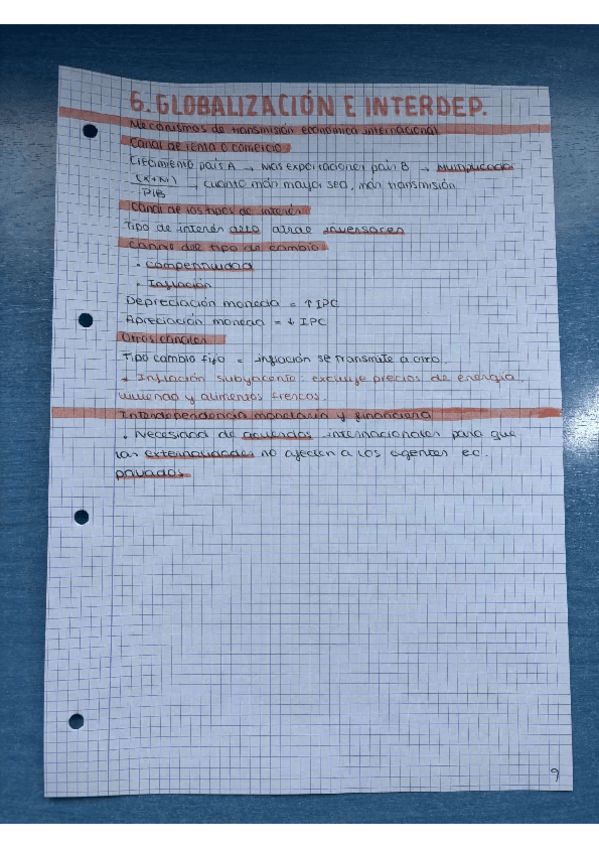 6. GLOBALIZACIÓN E INTERDEP.
Mecanismos de transmisión económica internacional
Canal de renta o comercio
Crecimiento país A → más exportaciones país B → multiplicador
(X+M)/PIB → cuanto más mayor sea, más transmisión
Canal de los tipos de interés
Tipo de interés alto atrae inversores
Canal del tipo de cambio
· Competitividad
· Inflación
Depreciación moneda = ↑ IPC
Apreciación moneda = ↓ IPC
Otros canales
Tipo cambio fijo = inflación se transmite a otro.
* Inflación subyacente: excluye precios de energía
vivienda y alimentos frescos.
Interdependencia monetaria y financiera
· Necesidad de acuerdos internacionales para que
las externalidades no afecten a los agentes ec.
privados
9